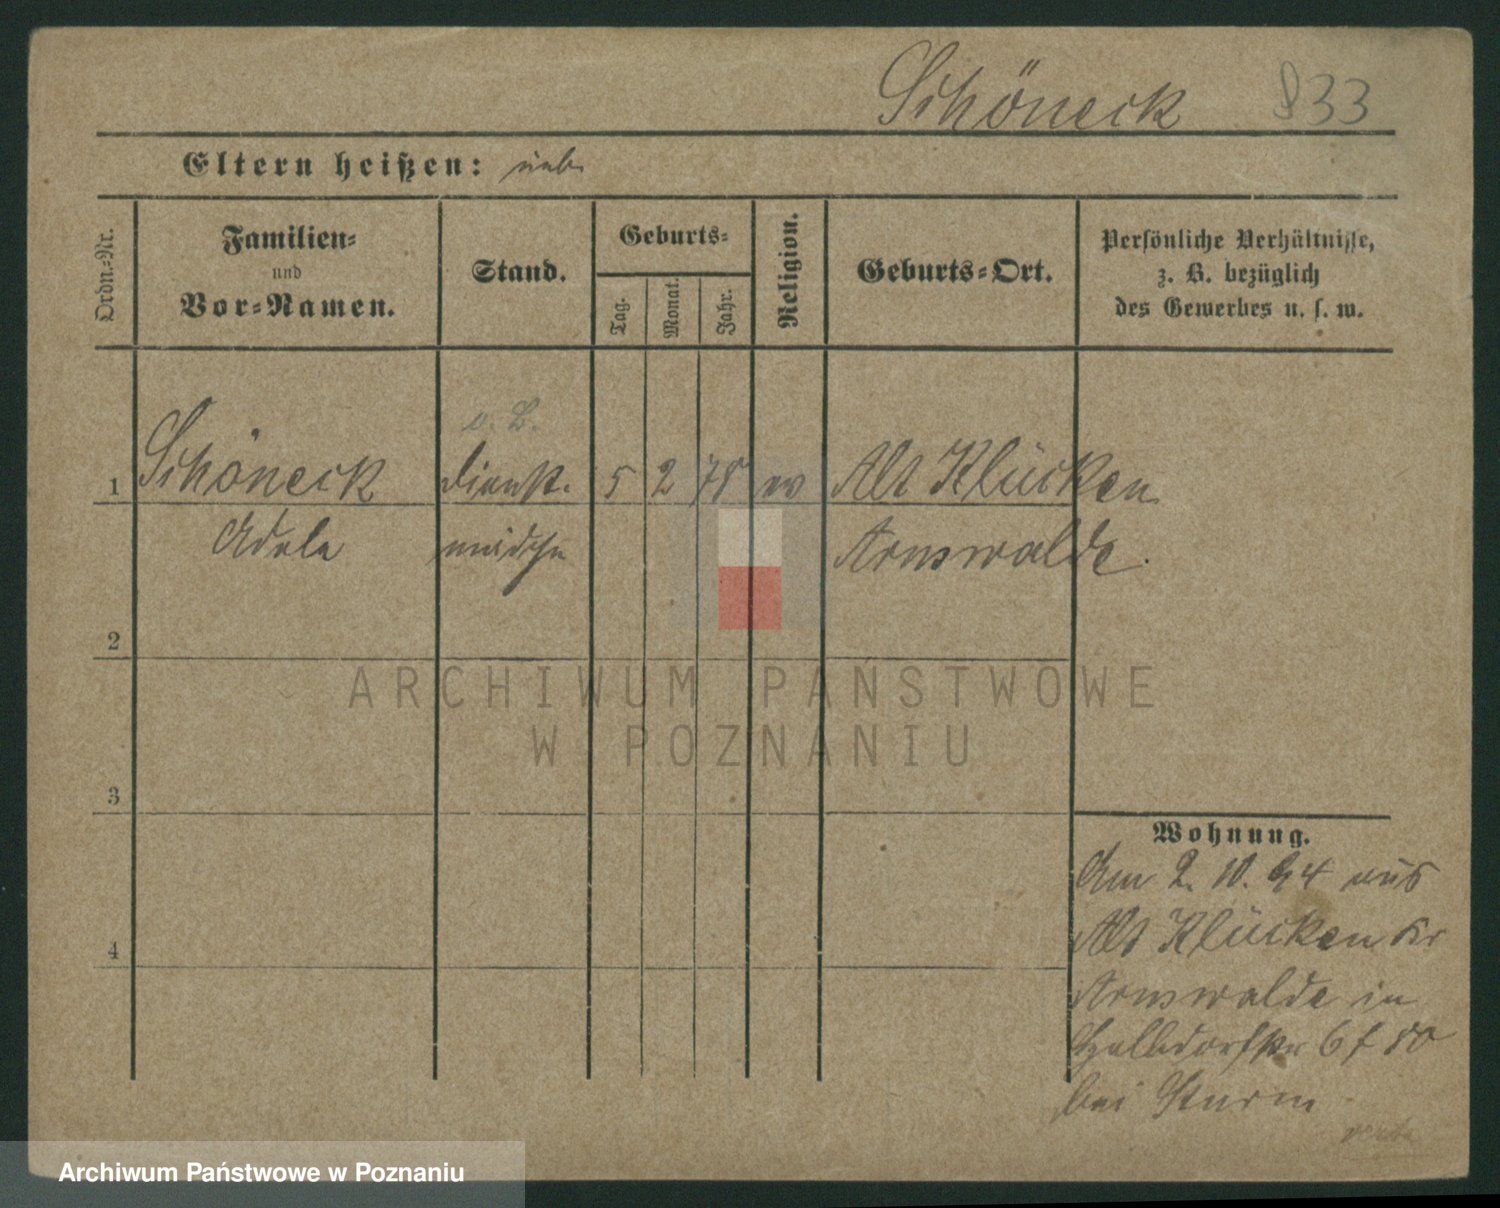 Schöneck 833
Eltern heißen: unb.
Ordn.-Nr.
Familien-
und
Vor-Namen.
Stand.
Geburts-
Tag.
Monat.
Jahr.
Religion.
Geburts-Ort.
Persönliche Verhältnisse,
z. B. bezüglich
des Gewerbes u. s. w.
o. B.
1 Schöneck Dienst- 5 2 78 ev Alt Klücken
Adele mädchen Arnswalde.
2
3
4
ARCHIWUM PAŃSTWOWE
W POZNANIU
Wohnung.
Am 2. 10. 94 aus
Alt Klücken Kr
Arnswalde in
Halbdorfstr 6 f 80
bei Sturm
verte
Archiwum Państwowe w Poznaniu